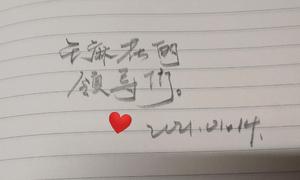 麻社的
领导们。
2021.01.14.